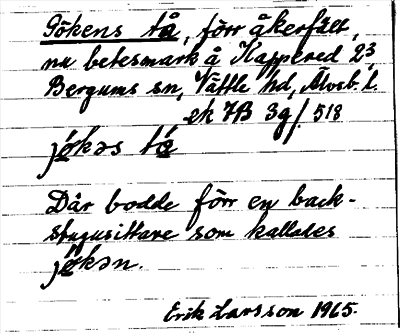 Gökens tå, förr åkerfält,
nu betesmark å Kappered 23,
Bergums sn, Vättle hd, Älvsb. l.
ek 7B 3g/518
jøkəs tå
Där bodde förr en back-
stugusittare som kallades
jøkən.
Erik Larsson 1965.